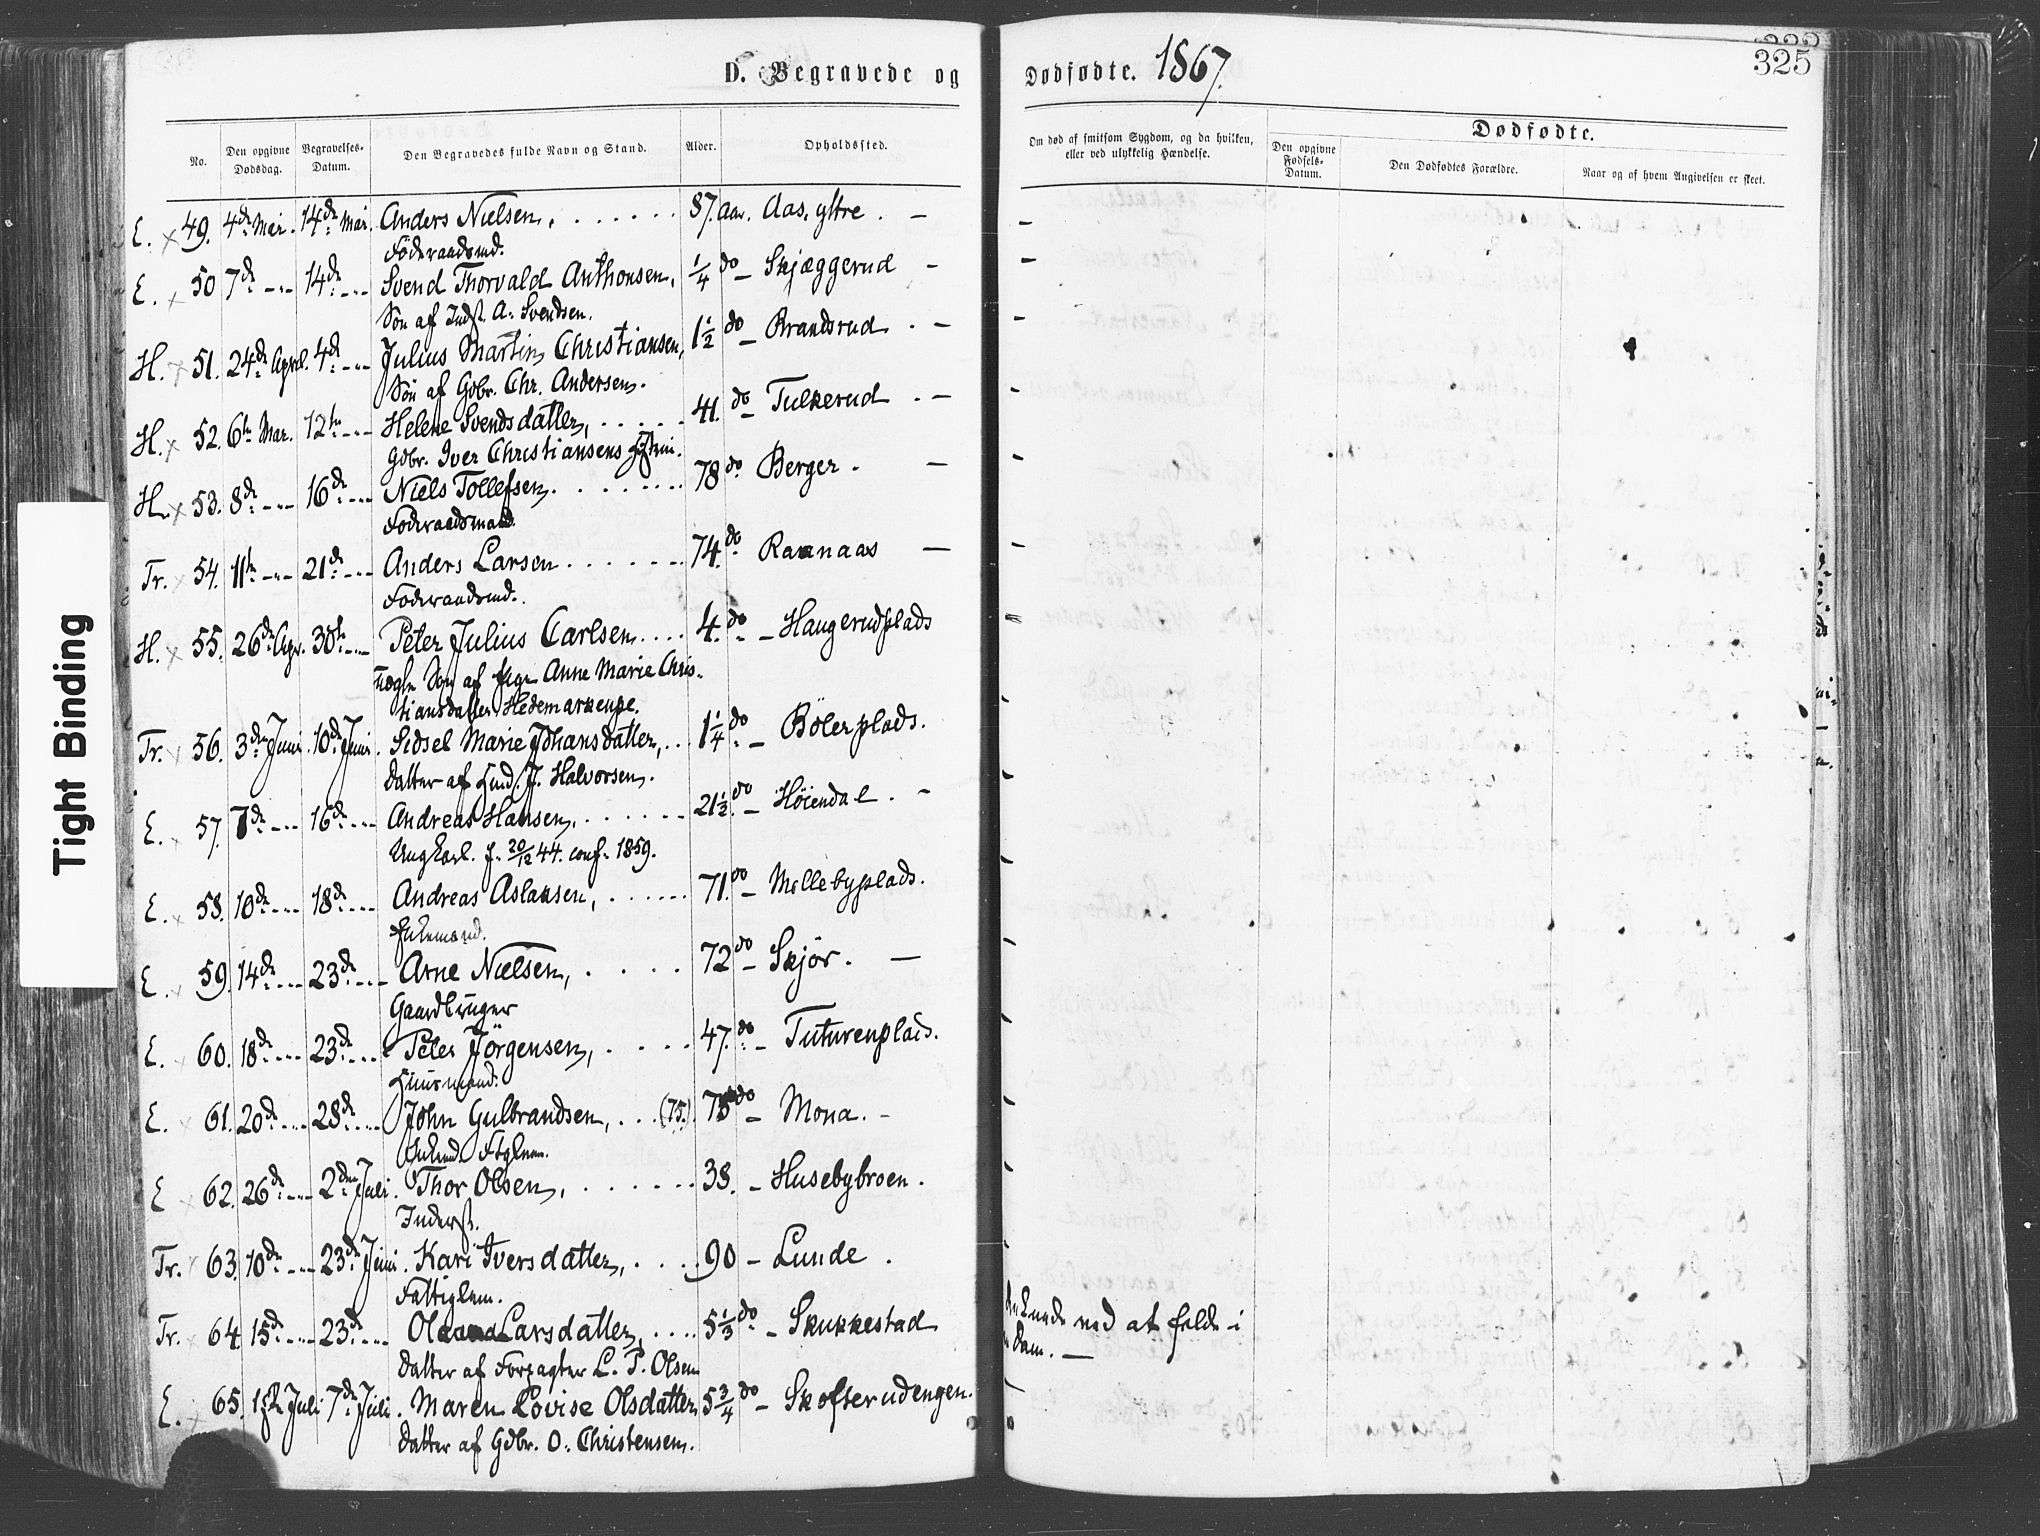 D. Begravede og Dødfødte. 1867.
325
No.
Den opgivne Dødsdag.
Begravelses-Datum.
Den Begravedes fulde Navn og Stand.
Alder.
Opholdssted.
Om død af smitsom Sygdom, og da hvilken, eller ved ulykkelig Hændelse.
Dødfødte.
Den opgivne Fødsels-Datum.
Den Dødfødtes Forældre.
Naar og af hvem Angivelsen er skeet.
E. 49. 4de Mai. 14de Mai. Anders Nielsen, 87. Aar. Aas, yttre. -
Föderaadsmd.
E. 50 7de 14de Svend Thorvald Anthonsen, 1/4 do - Skjæggerud -
Sön af Indst. A. Svendsen.
H. 51. 24de April. 4de Julius Martin Christiansen, 1 1/2 do - Brandsrud. -
Sön af Gdbr. Chr. Andersen.
H. 52. 6te Mai. 12te Helene Svendsdatter, 41. do - Tulkerud. -
Gdbr. Iver Christiansens
H. 53. 8de 16de Niels Tollefsen. 78 do Berger. -
Föderaadsmand.
Tr. 54. 11te 21de Anders Larsen 74. do Raanaas -
Föderaadsmd.
H. 55. 26de Apr. 30te Peter Julius Carlsen 4. do - Haugerudplads
uægte Sön af Pige Anne Marie Chris-
tiansdatter Hedemarkenge.
Tr. 56. 3die Juni. 10de Juni. Sidsel Marie Johansdatter, 1 1/4 do - Bölerplads.
Datter af Husmd. J. Halvorsen.
E. 57. 7de 16de Andreas Hansen, 21 1/2 do - Höiendal. -
Ungkarl. f. 20/12 44. conf. 1859.
E. 58. 10de 18de Andreas Aslaksen, 71. do - Möllebyplads.
Enkemand.
E. 59. 14de 23de Arne Nielsen, 72 do - Skjör. -
Gaardbruger
E. 60. 18de 23de Peter Jörgensen, 47. do - Tuturenplads.
Huusmand.
E. 61. 20de 28de John Gulbrandsen, (75.) 75 do - Mona. -
Enkemd. Ftglem.
E 62. 26de 2den Juli. Thor Olsen, 38. - Husebybroen.
Inderst.
Tr. 63. 10de 23de Juni. Kari Iversdatter, 90 - Lunde.
Fattiglem.
Tr. 64 15de 23de Larsdatter, 5 1/3 do - Skukkestad
Datter af Forpagter L. P. Olsen
ved at falde i
Dam. -
E. 65. 1ste Juli 7de Juli. Maren Lovise Olsdatter 5 3/4 do - Skofterudengen.
Datter af Gdbr. O. Christensen.
Tight Binding